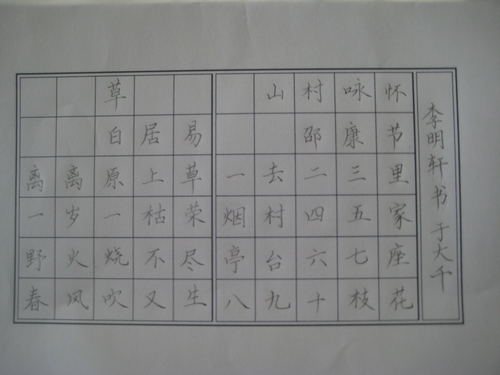 草
白居易
离离原上草
一岁一枯荣
野火烧不尽
春风吹又生
山村咏怀
邵康节
一去二三里
烟村四五家
亭台六七座
八九十枝花
李明轩书于大千